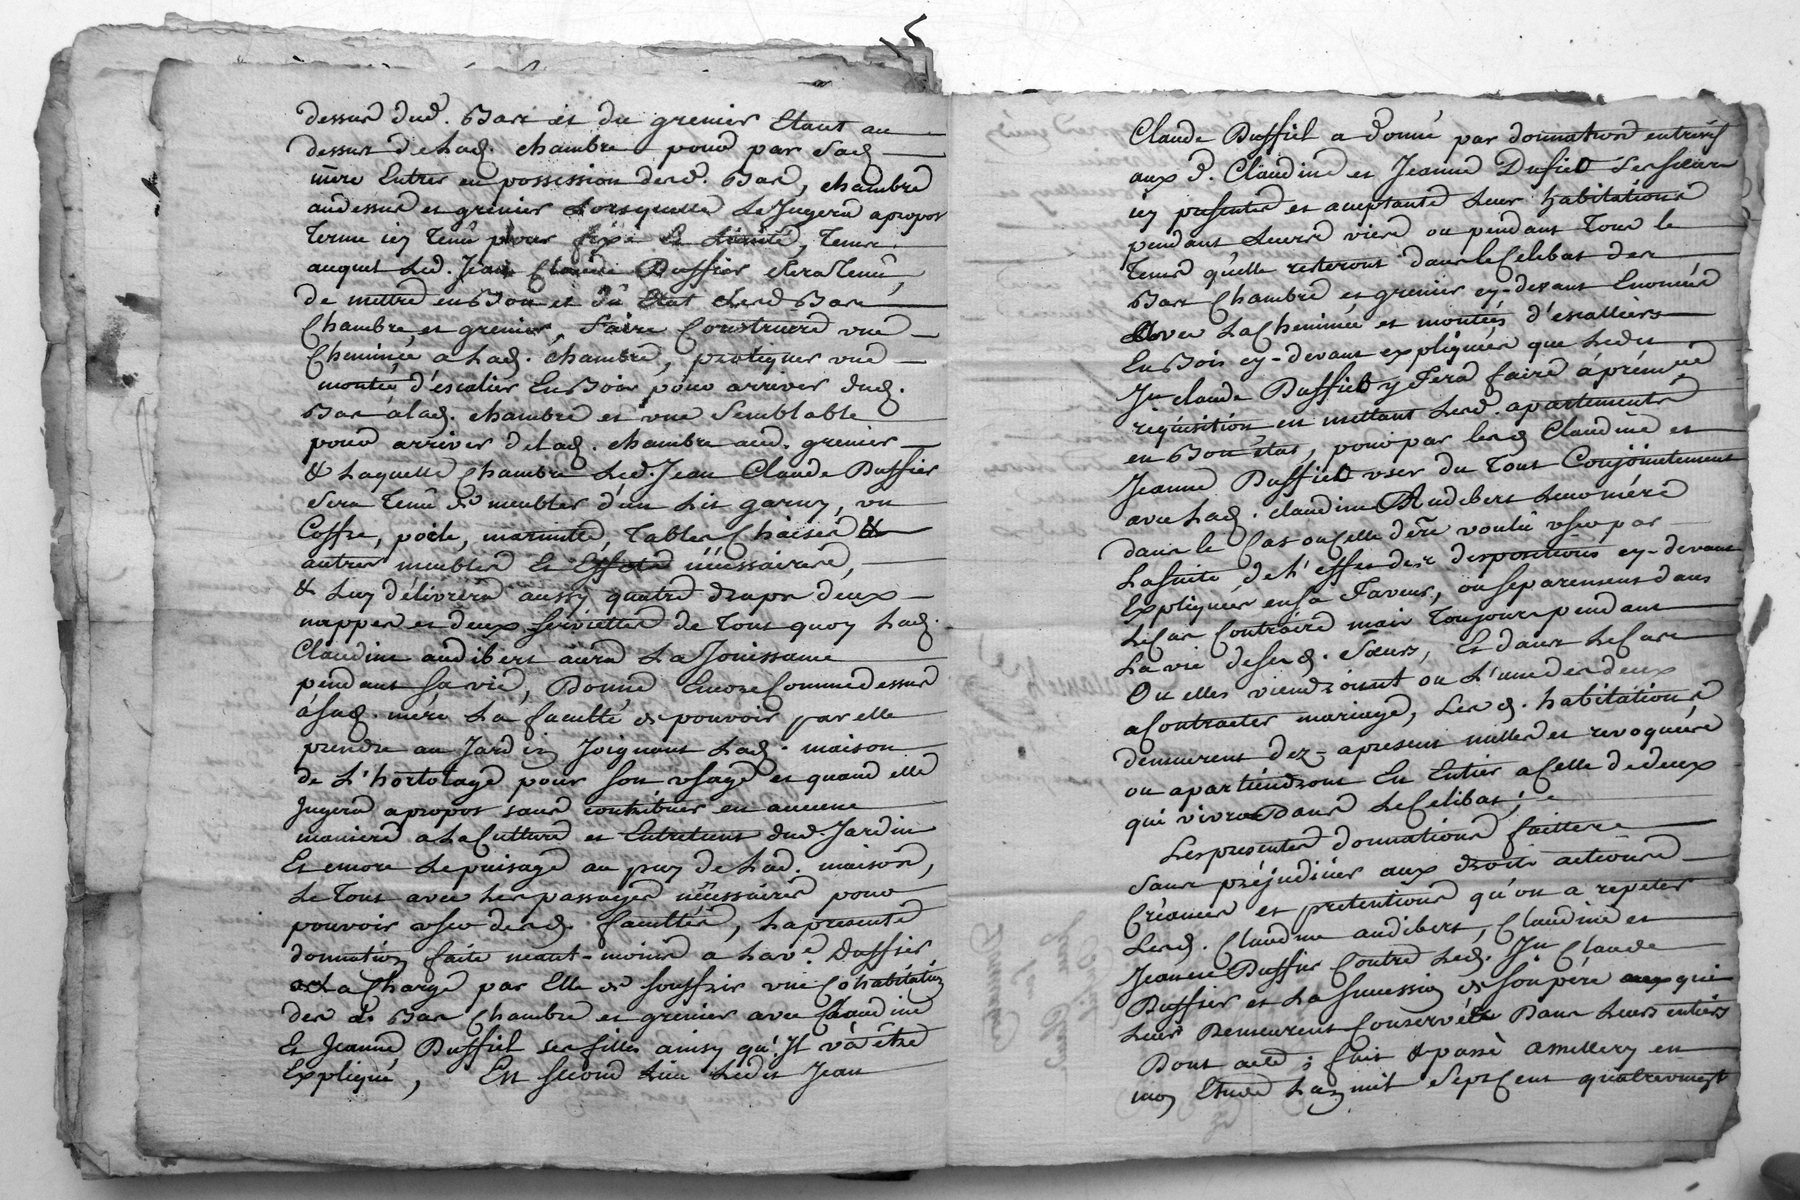 dessus dud. Bas et du grenier Etant au
dessus de lad. chambre pour par sad.
mere Entrer en possession desd. Bas, chambre
audessus et grenier Lorsquelle Le Jugera apropos
terme icy tenu pour fixe et limité, tems
auquel Led. Jean Claude Buffier sera tenû
de mettre en Bon et dû Etat Lesd. Bas
Chambre et grenier, faire Construire une
Cheminée a Lad. chambre, pratiquer une
montée d'escalier En Bois pour arriver dud.
Bas à lad. chambre et une Semblable
pour arriver de Lad. chambre aud. grenier
& Laquelle Chambre Led. Jean Claude Buffier
sera tenû de meubler d'un Lit garny, un
Coffre, poële, marmitte, Table Chaises &
autres meubles et Effets nécessaires,
& Luy délivrera aussy quatre draps deux
nappes et deux serviettes de tout quoy Lad.
Claudine audibert aura La Jouissance
pendant sa vie, Donne Encore Comme dessus
à Sad. mère La faculté de pouvoir par elle
prendre au Jardin Joignant Lad. maison
de L'hortolage pour son usage et quand elle
Jugera apropos sans contribuer en aucune
maniere a La Culture et Entretient dud. Jardin
Et encore Le puisage au puy de Lad. maison,
Le Tout avec Les passages nécessaires pour
pouvoir user desd. facultés, La presente
donnation faite neant-moins a La ve. Buffier
a La Charge par Elle de souffrir une Cohabitation
des d. Bas Chambre et grenier avec Claudine
Et Jeanne Buffiel ses filles ainsy qu'Il va être
Expliqué, En second Lieu Ledit Jean
Claude Buffiel a donné par donnation entrevifs
aux d. Claudine et Jeanne Bufiel ses sœurs
icy presentes et acceptantes Leur habitation
pendant Leurs vies ou pendant Tout le
tems qu'elle resteront dans le Celibat des
Bas Chambre et grenier cy-devant Enoncés
avec La Cheminée et montées d'escalliers
En Bois cy-devant expliquées que Ledit
Jn claude Buffiel y fera faire à première
réquisition en mettant Lesd. apartements
en Bon état, pour par lesd. Claudine et
Jeanne Buffiel user du Tout Conjointement
avec Lad. claudine Audibert Leur mère
dans le Cas ou Celle dere. voulû user par
La suite de L'effet des dispositions cy-devant
Expliquées en sa faveur, ou separement dans
Le Cas Contraire mais Toujours pendant
La vie de Sesd. Sœurs, Et dans Le Cas
Ou elles viendroient ou L'une des deux
a Contracter mariage, Lesd. habitations
demeurent dez-apresent nulles et revoquées
ou apartiendront En Entier a Celle de deux
qui vivra Dans Le Celibat;
Les presentes donnations faittes
sans préjudicier aux droits actions
Créances et pretentions qu'on a repeter
Lesd. Claudine audibert, Claudine et
Jeanne Buffier Contre Led. Jn Claude
Buffier et La succession de son père qui
Leur Demeurent Conservés Dans Leurs entiers
Dont acte; fait & passé a Millery en
mon Etude L'an mil Sept Cent quatrevingt